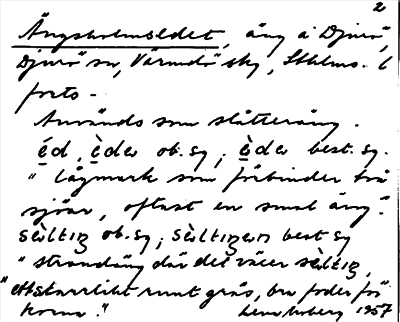 2
Ängsholmsedet, äng å Djurö,
Djurö sn, Värmdö skg, Sthlms. l
forts -
Används som slåtteräng.
éd, èder ob. sg; èder best. sg.
" Lågmark som förbinder två
sjöar, oftast en smal äng".
sèltıg ob. sg; sèltıgen best sg
"strandäng där det växer sèltıg,
"ett starrlikt runt gräs, bra foder för
korna."
Lena Moberg 1957